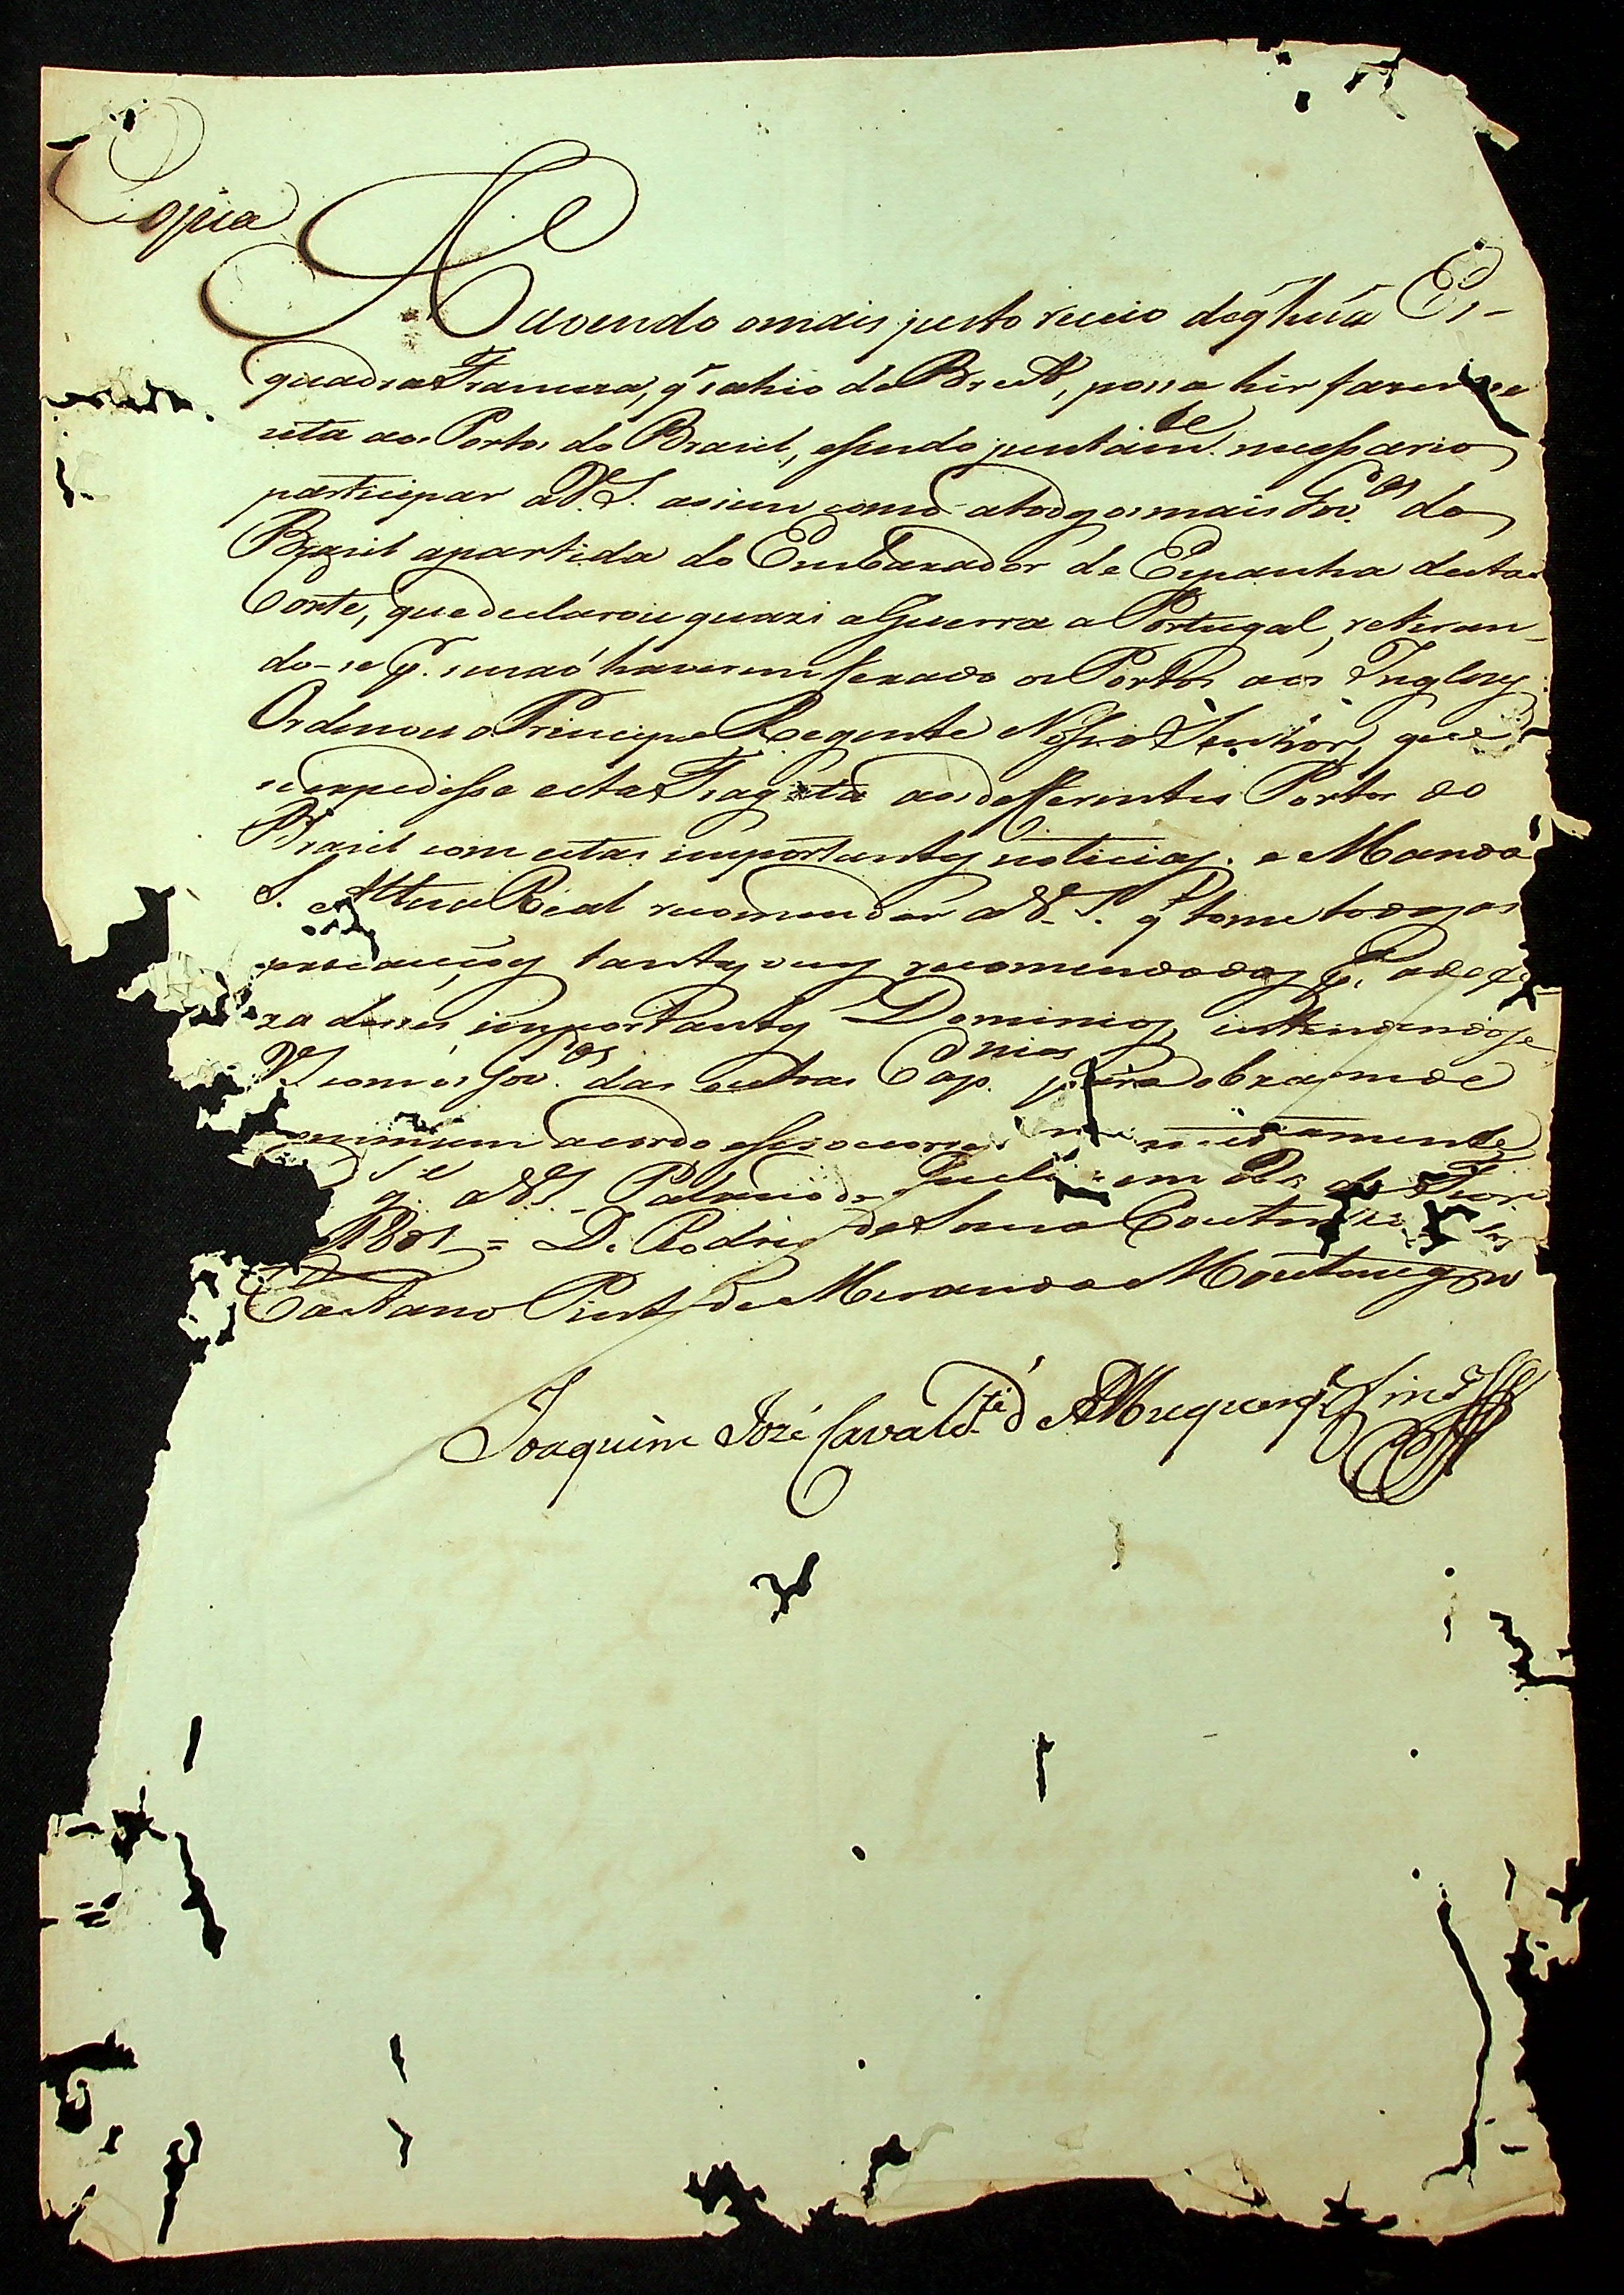 Copia
Havendo o mais justo receio de q̃ huã Es-
quadra Franceza, q̃ sahio de Brest, possa hir fazer se
rota aos Portos do Brasil, e sendo juntam.te necessario
participar a V.S. assim como a todos os mais Gov.es do
Brasil a partida do Embaxador de Espanha desta
Corte, que declarou quazi a Guerra a Portugal, retiran-
do-se p.r se naõ haverem fexado os Portos aos Inglezes:
Ordenou o Principe Regente Nosso Senhor, que
se expedisse esta Fragata aos defferentes Portos do
Brasil com estas importantes noticias. e Manda
S. Alteza Real recomendar a V.S. q̃ tome todas as
precauçoes tantas vezes recomendadas p.a a defe-
za desses importantes Dominios, intendendo se
V.S. com os Gov.es das outras Cap.nias para obrarem de
commum acordo e se socorrerem
g.e a V.S. Palacio de Queluz em de de Fever.o
1801 = D. Rodrigo de Souza Coutinho
Caetano Pinto de Miranda Montenegro
Joaquim José Cavalc.te d' Albuquerq.e Lins